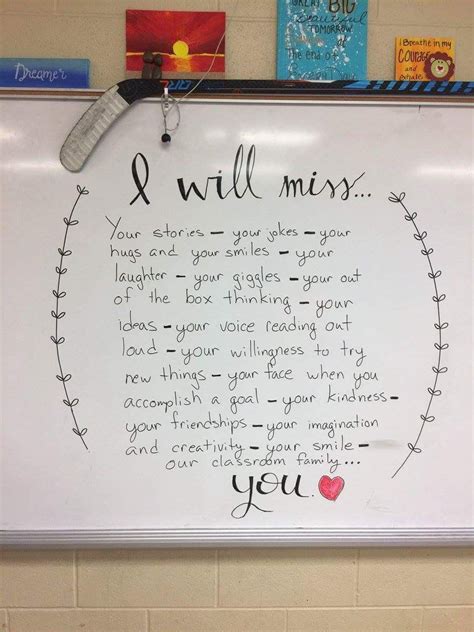 GREAT BIG
Beautiful
TOMORROW
at the
end of
I Breathe in my
Courage
and
exhale
Dreamer
I will miss...
Your stories – your jokes – your
hugs and your smiles – your
laughter – your giggles – your out
of the box thinking – your
ideas – your voice reading out
loud – your willingness to try
new things – your face when you
accomplish a goal – your kindness –
your friendships – your imagination
and creativity – your smile –
our classroom family...
you.